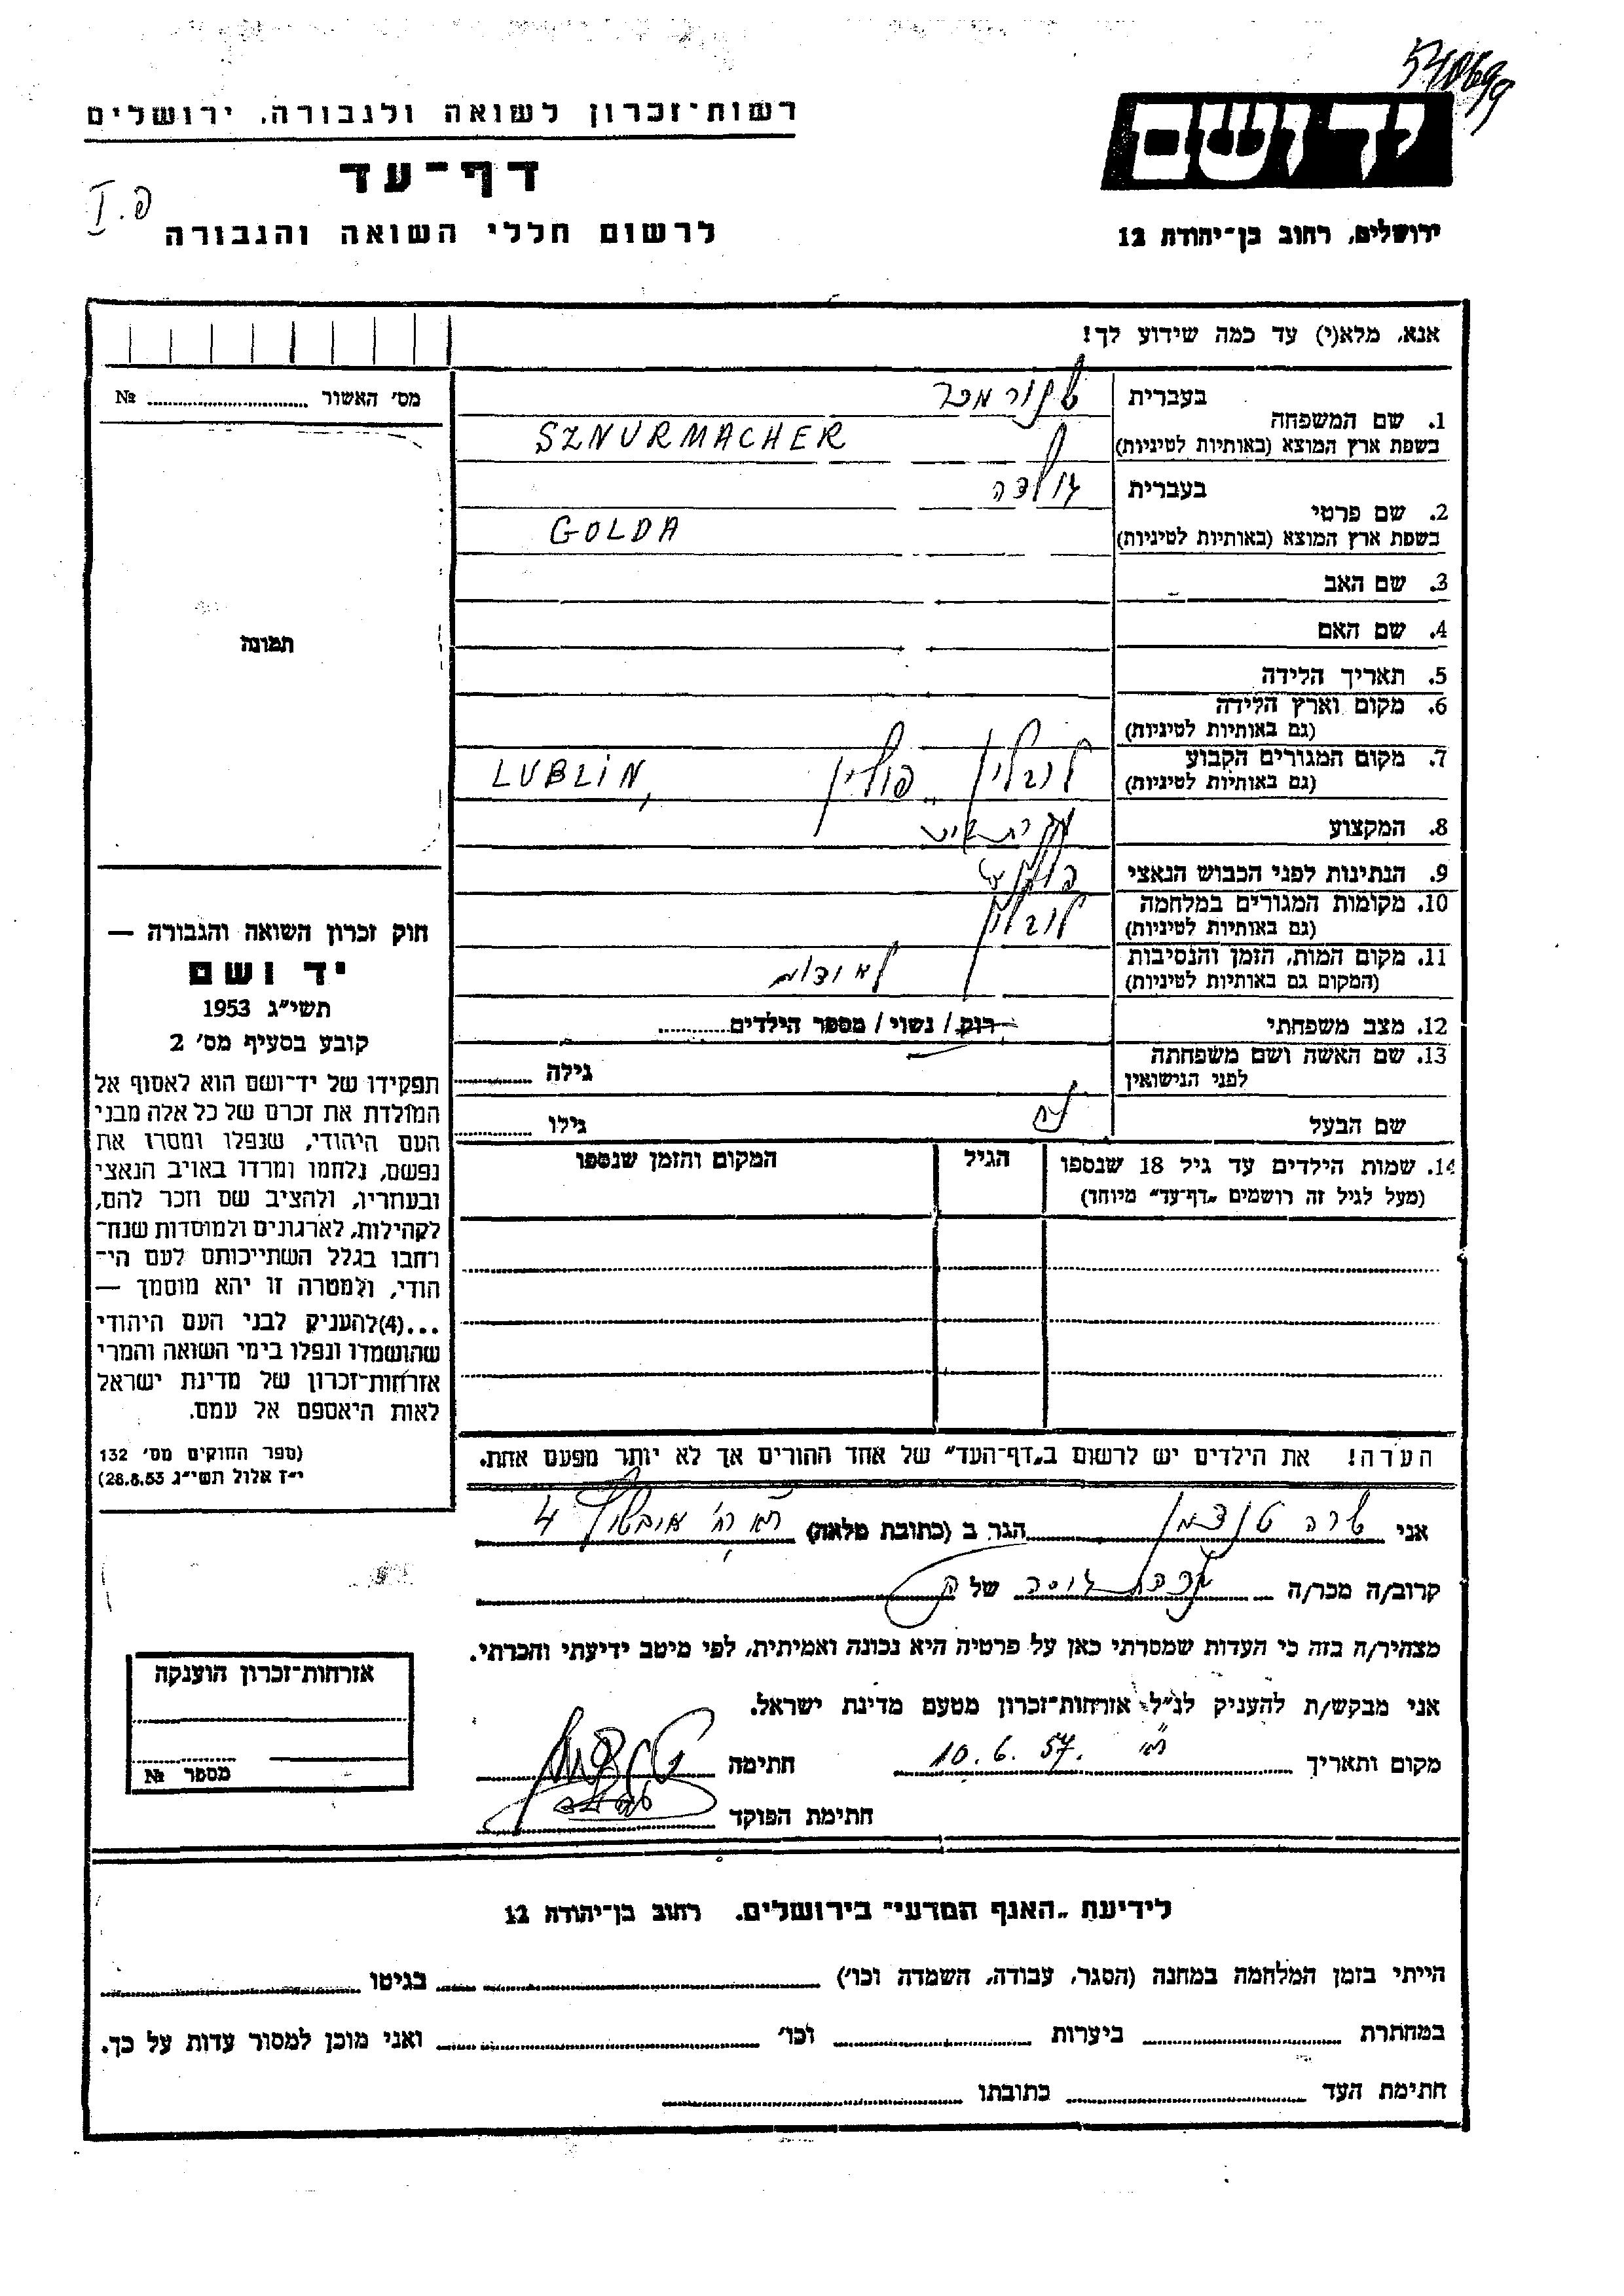 יד ושם
ירושלים, רחוב בן-יהודה 12
רשות-זכרון לשואה ולגבורה, ירושלים
דף-עד
לרשום חללי השואה והגבורה
פ.I
אנא, מלא(י) עד כמה שידוע לך!
מס' האשור № ........
1. שם המשפחה
בעברית שנורמכר
בשפת ארץ המוצא (באותיות לטיניות) SZNURMACHER
2. שם פרטי
בעברית גולדה
בשפת ארץ המוצא (באותיות לטיניות) GOLDA
3. שם האב
4. שם האם
5. תאריך הלידה
6. מקום וארץ הלידה
(גם באותיות לטיניות)
7. מקום המגורים הקבוע לובלין פולין LUBLIN,
(גם באותיות לטיניות)
8. המקצוע עקרת בית
9. הנתינות לפני הכבוש הנאצי פולנית
10. מקומות המגורים במלחמה לובלין
(גם באותיות לטיניות)
11. מקום המות, הזמן והנסיבות לא ידוע
(המקום גם באותיות לטיניות)
12. מצב משפחתי רוק / נשוי / מספר הילדים........
13. שם האשה ושם משפחתה
לפני הנישואין גילה ........
שם הבעל גילו ........
14. שמות הילדים עד גיל 18 שנספו הגיל המקום והזמן שנספו
(מעל לגיל זה רושמים "דף-עד" מיוחד)
הערה! את הילדים יש לרשום ב"דף-העד" של אחד ההורים אך לא יותר מפעם אחת.
תמונה
חוק זכרון השואה והגבורה —
יד ושם
תשי"ג 1953
קובע בסעיף מס' 2
תפקידו של יד-ושם הוא לאסוף אל
המולדת את זכרם של כל אלה מבני
העם היהודי, שנפלו ומסרו את
נפשם, נלחמו ומרדו באויב הנאצי
ובעוזריו, ולהציב שם וזכר להם,
לקהילות, לארגונים ולמוסדות שנח-
רחבו בגלל השתייכותם לעם הי-
הודי, ולמטרה זו יהא מוסמך —
...(4)להעניק לבני העם היהודי
שהושמדו ונפלו בימי השואה והמרי
אזרחות-זכרון של מדינת ישראל
לאות היאספם אל עמם.
(ספר החוקים מס' 132
י"ז אלול תשי"ג 28.8.53)
אני שרה הגר ב (כתובת מלאה) 4
קרוב/ה מכר/ה קרבת של
מצהיר/ה בזה כי העדות שמסרתי כאן על פרטיה היא נכונה ואמיתית, לפי מיטב ידיעתי והכרתי.
אני מבקש/ת להעניק לנ"ל אזרחות-זכרון מטעם מדינת ישראל.
מקום ותאריך 10.6.57. חתימה
חתימת הפוקד
אזרחות-זכרון הוענקה
מספר №
לידיעת "האגף המדעי" בירושלים. רחוב בן-יהודה 12
הייתי בזמן המלחמה במחנה (הסגר, עבודה, השמדה וכו') ........ בגיטו ........
במחתרת ........ ביערות ........ וכו' ........ ואני מוכן למסור עדות על כך.
חתימת העד ........ כתובתו ........